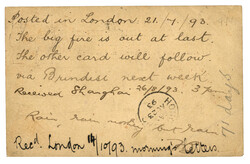 Posted in London 21/7/93.
The big fire is out at last
The other card will follow
via Brindisi next week
Received Shanghai 26/8/93, 3 pm
Rain, rain nothing but rain
Recd. London 14/10/93 morning letters.
71 days
HO
93